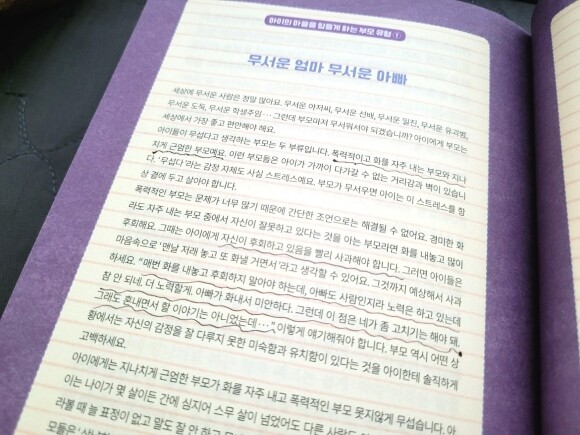 아이의 마음을 힘들게 하는 부모 유형 ①
무서운 엄마 무서운 아빠
세상에 무서운 사람은 정말 많아요. 무서운 아저씨, 무서운 선배, 무서운 일진, 무서운 유괴범,
무서운 도둑, 무서운 학생주임… 그런데 부모마저 무서워서야 되겠습니까? 아이에게 부모는
세상에서 가장 좋고 편안해야 해요.
아이들이 무섭다고 생각하는 부모는 두 부류입니다. 폭력적이고 화를 자주 내는 부모와 지나
치게 근엄한 부모예요. 이런 부모들은 아이가 가까이 다가갈 수 없는 거리감과 벽이 있습니
다. ‘무섭다’라는 감정 자체도 사실 스트레스예요. 부모가 무서우면 아이는 이 스트레스를 항
상 곁에 두고 살아야 합니다.
폭력적인 부모는 문제가 너무 많기 때문에 간단한 조언으로는 해결될 수 없어요. 경미한 화
라도 자주 내는 부모 중에서 자신이 잘못하고 있다는 것을 아는 부모라면 화를 내놓고 많이
후회해요. 그때는 아이에게 자신이 후회하고 있음을 빨리 사과해야 합니다. 그러면 아이들은
마음속으로 ‘맨날 저래 놓고 또 화낼 거면서’라고 생각할 수 있어요. 그것까지 예상해서 사과
하세요. “매번 화를 내놓고 후회하지 말아야 하는데, 아빠도 사람인지라 노력은 하고 있는데
참 안 되네. 더 노력할게. 아빠가 화내서 미안하다. 그런데 이 점은 네가 좀 고치기는 해야 돼.
그래도 혼내면서 할 이야기는 아니었는데…” 이렇게 얘기해줘야 합니다. 부모 역시 어떤 상
황에서는 자신의 감정을 잘 다루지 못한 미숙함과 유치함이 있다는 것을 아이한테 솔직하게
고백하세요.
아이에게는 지나치게 근엄한 부모가 화를 자주 내고 폭력적인 부모 못지않게 무섭습니다. 아
이는 나이가 몇 살이든 간에 심지어 스무 살이 넘었어도 다른 사람도
라볼 때 늘 표정이 없고 말도 잘 안 하고
모들은